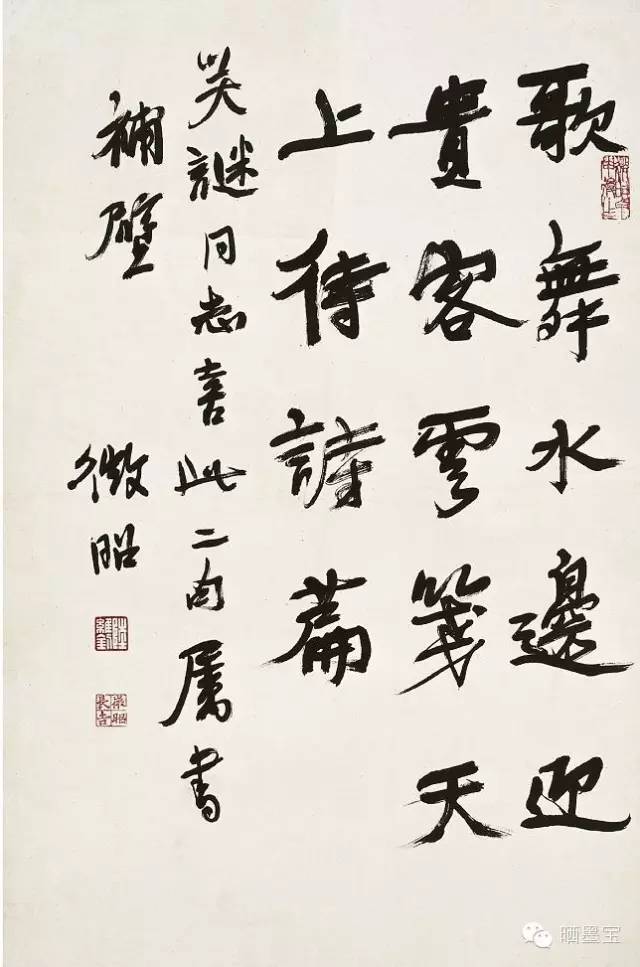 歌舞水邊迎
貴客雲箋天
上待詩篇
笑謎同志喜此二句属書
補壁
微昭
陸維釗
晒墨宝